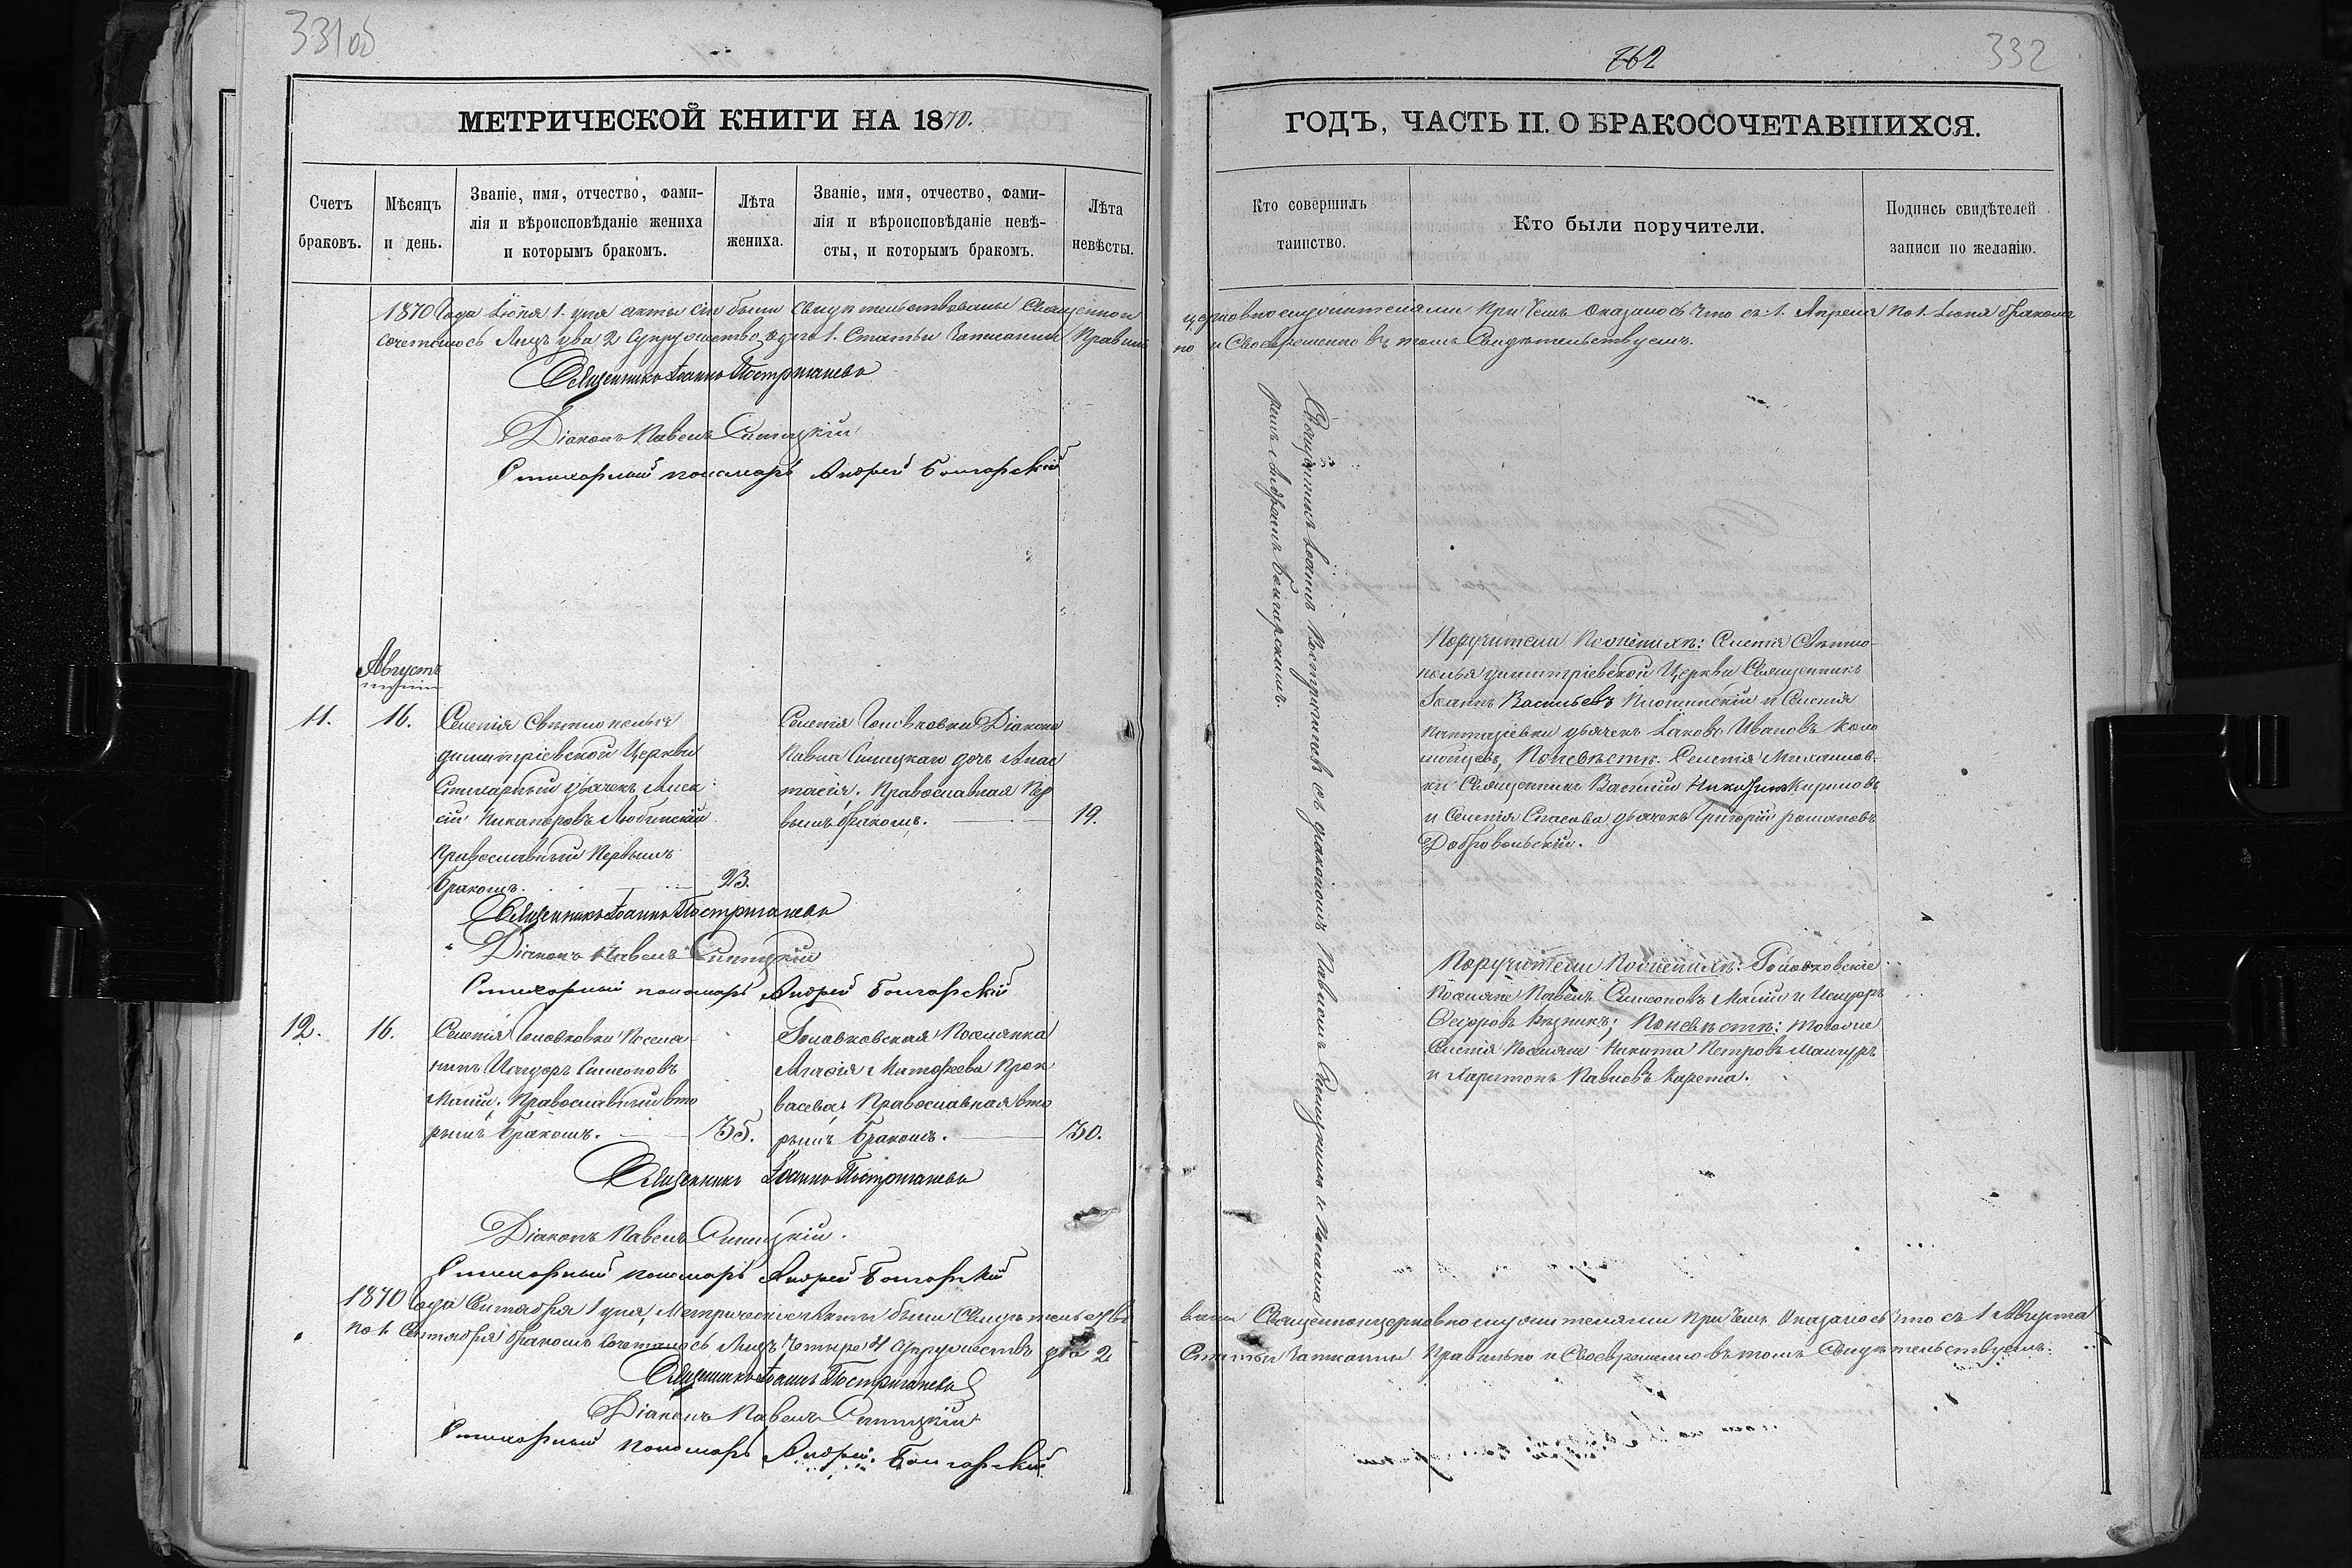 331об
МЕТРИЧЕСКОЙ КНИГИ НА 1870.
Счетъ
браковъ.
Мѣсяцъ
и день.
Званіе, имя, отчество, фами-
лія и вѣроисповѣданіе жениха
и которымъ бракомъ.
Лѣта
жениха.
Званіе, имя, отчество, фами-
лія и вѣроисповѣданіе невѣ-
сты, и которымъ бракомъ.
Лѣта
невѣсты.
1870 Года Іюня 1. дня акты сіи были Свидѣтельствованы Священно и
сочеталось Лицъ два 2 Супружество одно 1. Статьи Записаны Правиль
Священникъ Іоаннъ Постригачевъ
Діаконъ Павелъ Синицкій
Стихарный пономарь Андрей Болгарскій
Августъ
11.
16.
Селенія Свѣтлополья
Димитріевской Церкви
Стихарный дьячекъ Алек
сій Никаноровъ Любинскій
Православный Первымъ
бракомъ.
23.
Селенія Головковки Діакона
Павла Синицкаго дочь Анас
тасія. Православная Пер
вымъ бракомъ.
19.
Священникъ Іоаннъ Постригачевъ
Діаконъ Павелъ Синицкій
Стихарный пономарь Андрей Болгарскій
12.
16.
Селенія Головковки Поселя
нинъ Исидоръ Симеоновъ
Малій. Православный вто
рымъ бракомъ.
35.
Головковская Поселянка
Матфеева
Православная вто
рымъ бракомъ.
30.
Священникъ Іоаннъ Постригачевъ
Діаконъ Павелъ Синицкій.
Стихарный пономарь Андрей Болгарскій
1870 Года Сентября 1 дня, Метрическіе Акты были Свидѣтельство
по 1. Сентября бракомъ сочеталось Лицъ Четыре 4 Супружествъ два 2
Священникъ Іоаннъ Постригачевъ
Діаконъ Павелъ Синицкій
Стихарный пономарь Андрей Болгарскій
762
332
ГОДЪ, ЧАСТЬ II. О БРАКОСОЧЕТАВШИХСЯ.
Кто совершилъ
таинство.
Кто были поручители.
Подпись свидѣтелей
записи по желанію.
церковнослужителями При Чемъ Оказалось Что съ 1. Апреля По 1. Іюня бракомъ
но и Своевременно въ томъ Свидѣтельствуемъ.
Священникъ Іоаннъ Постригачевъ съ діакономъ Павломъ Синицкимъ и Понама
ремъ Андреемъ Болгарскимъ.
Поручители По женихѣ: Селенія Свѣтло-
полья Димитріевской Церкви Священникъ
Іоаннъ Васильевъ и Селенія
Пантазіевки дьячекъ Іаковъ Ивановъ Коло
мойцевъ, По невѣстѣ. Селенія Михайлов-
ки Священникъ Василій Кириловъ
и Селенія Спасова дьячекъ Григорій Романовъ
Добровольскій.
Поручители По женихѣ: Головковскіе
Поселяне Павелъ Симеоновъ Малій и Исидоръ
Федоровъ; По невѣстѣ: того же
Селенія Поселяне Никита Петровъ
и Харитонъ Павловъ Карета.
ваны Священноцерковнослужителями При Чемъ Оказалось Что съ 1 Августа
Статьи Записанны Правильно и Своевременно въ томъ Свидѣтельствуемъ.